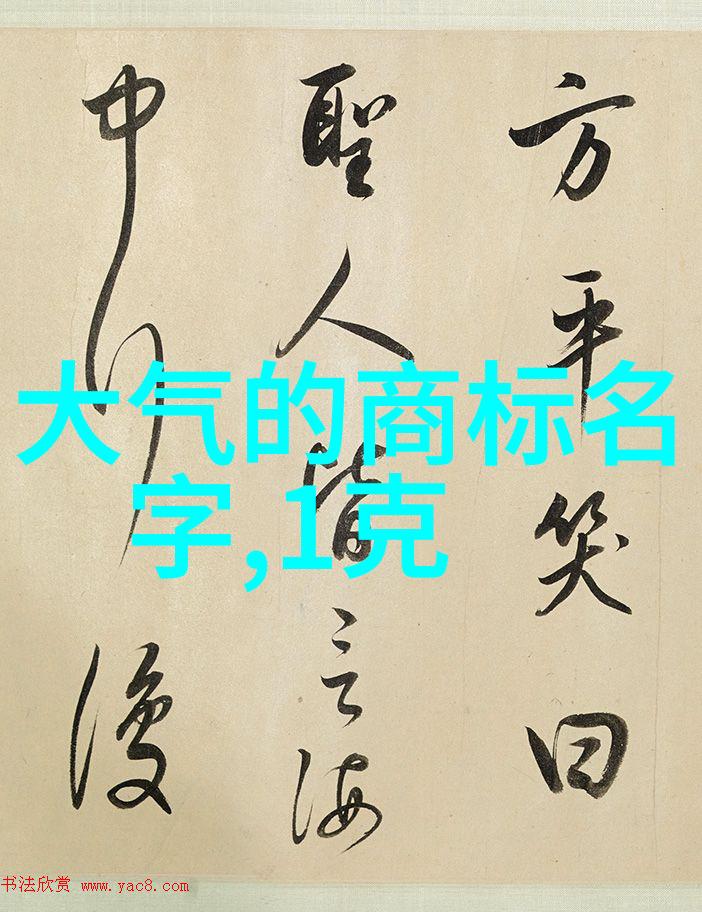 方平笑曰
聖人皆言海
中行復
大气的商标名
字,1克
书法欣赏 www.yac8.com